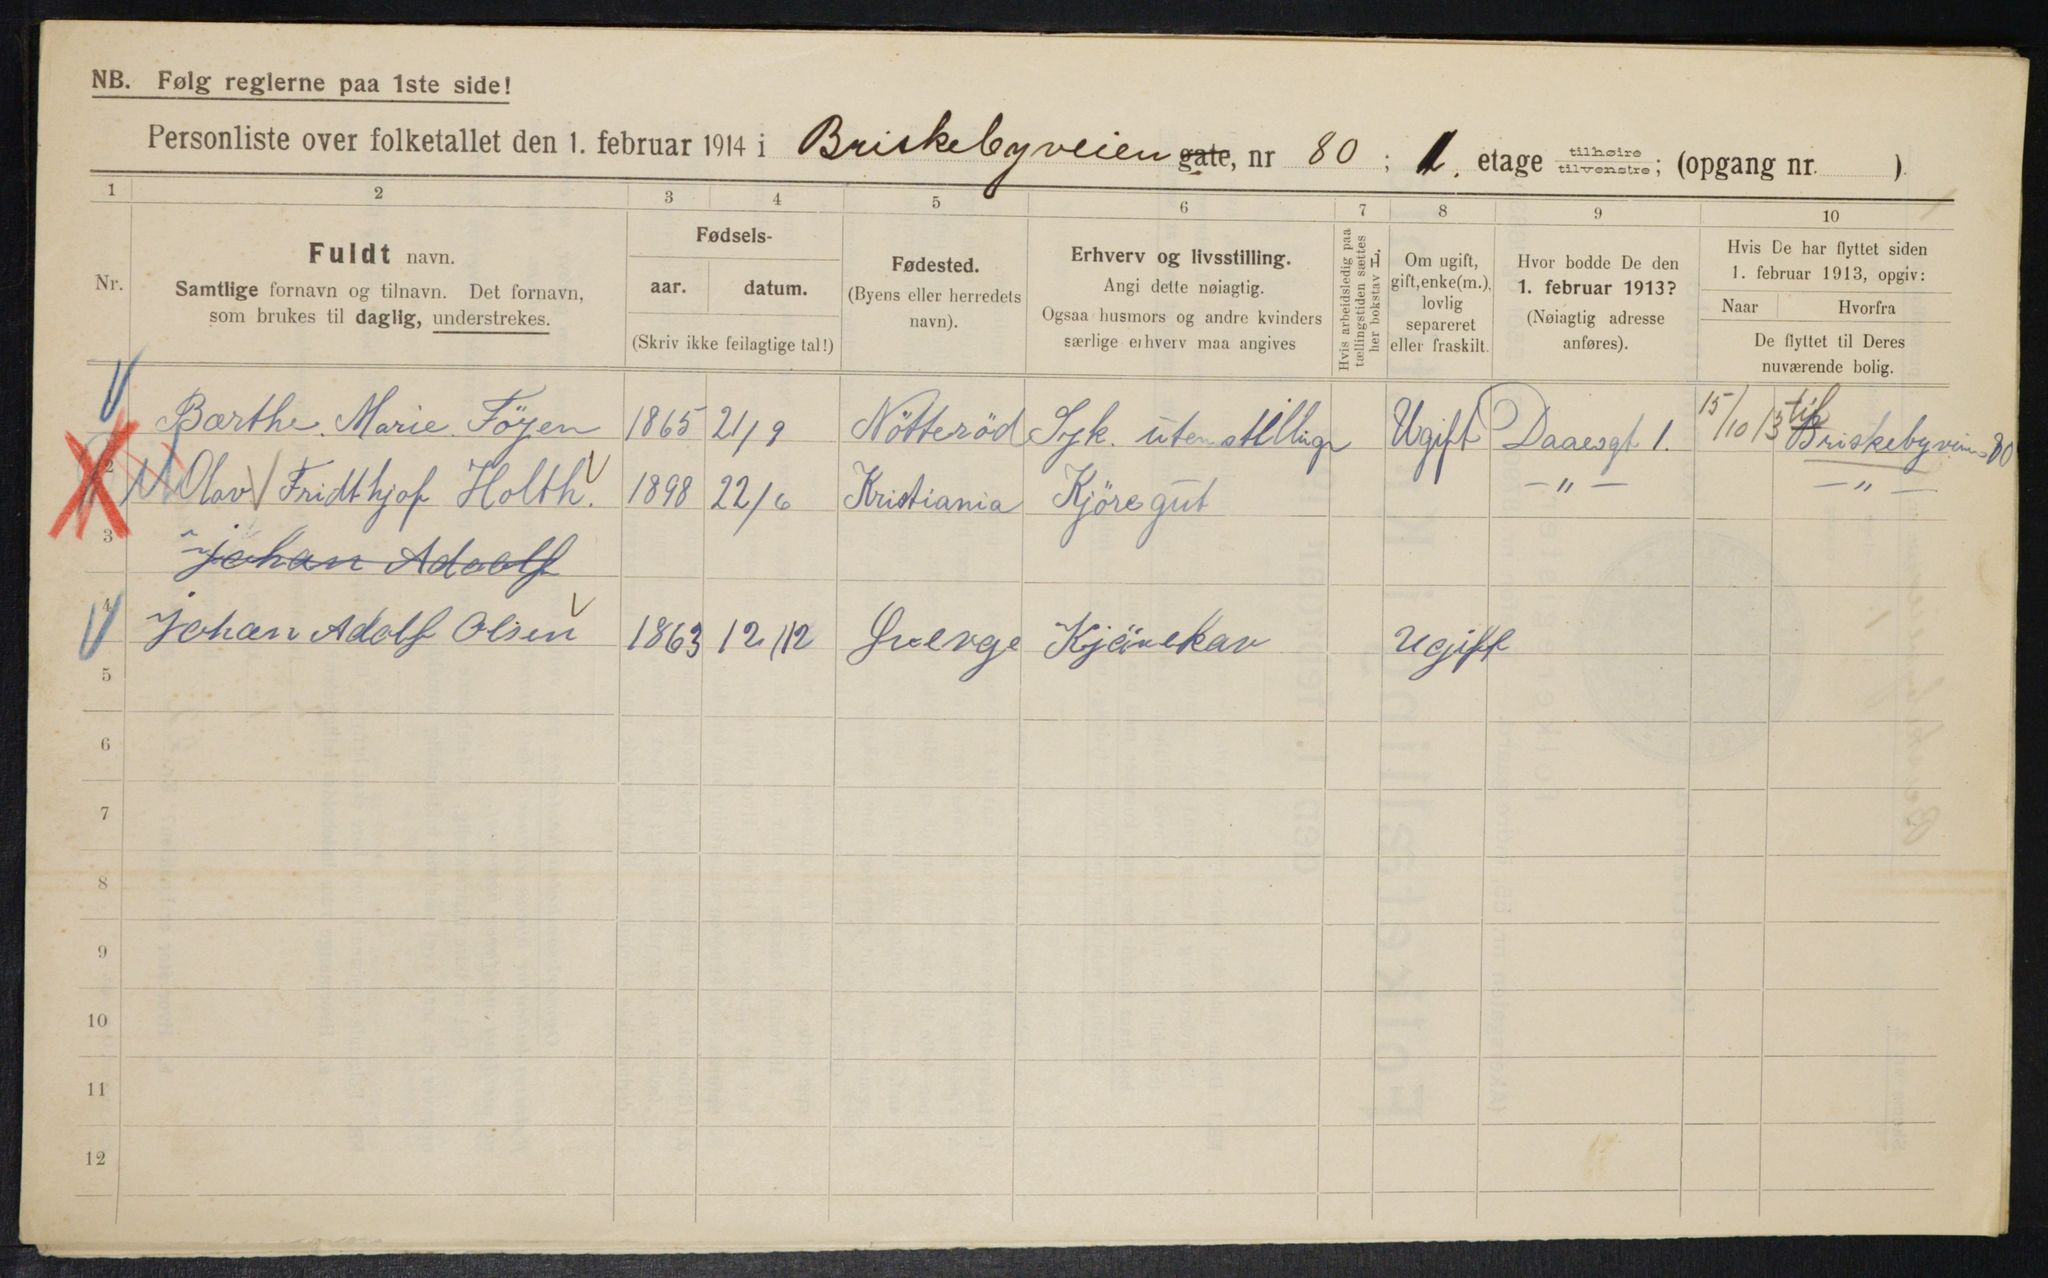 NB. Følg reglerne paa 1ste side!
Personliste over folketallet den 1. februar 1914 i Briskebyveien gate, nr 80 ; 1. etage tilhøire tilvenstre; (opgang nr. ).
1 2 3 4 5 6 7 8 9 10
Nr.
Fuldt navn.
Samtlige fornavn og tilnavn. Det fornavn,
som brukes til daglig, understrekes.
Fødsels-
aar. datum.
(Skriv ikke feilagtige tal!)
Fødested.
(Byens eller herredets
navn).
Erhverv og livsstilling.
Angi dette nøiagtig.
Ogsaa husmors og andre kvinders
særlige erhverv maa angives
Hvis arbeidsledig paa
tællingstiden sættes
her bokstav L.
Om ugift,
gift, enke(m.),
lovlig
separeret
eller fraskilt.
Hvor bodde De den
1. februar 1913?
(Nøiagtig adresse
anføres).
Hvis De har flyttet siden
1. februar 1913, opgiv:
Naar Hvorfra
De flyttet til Deres
nuværende bolig.
Bærthe Marie Föyen 1865 21/9 Nötteröd Syk. uten stilling Ugift Daaesgt 1. 15/10 13 til Briskebyveien 80
2 Olav Fridthjof Holth. 1898 22/6 Kristiania Kjöregut —„— —„—
3 Johan Adolf
4 Johan Adolf Olsen 1863 12/12 Sverge Kjörekar Ugift
5
6
7
8
9
10
11
12